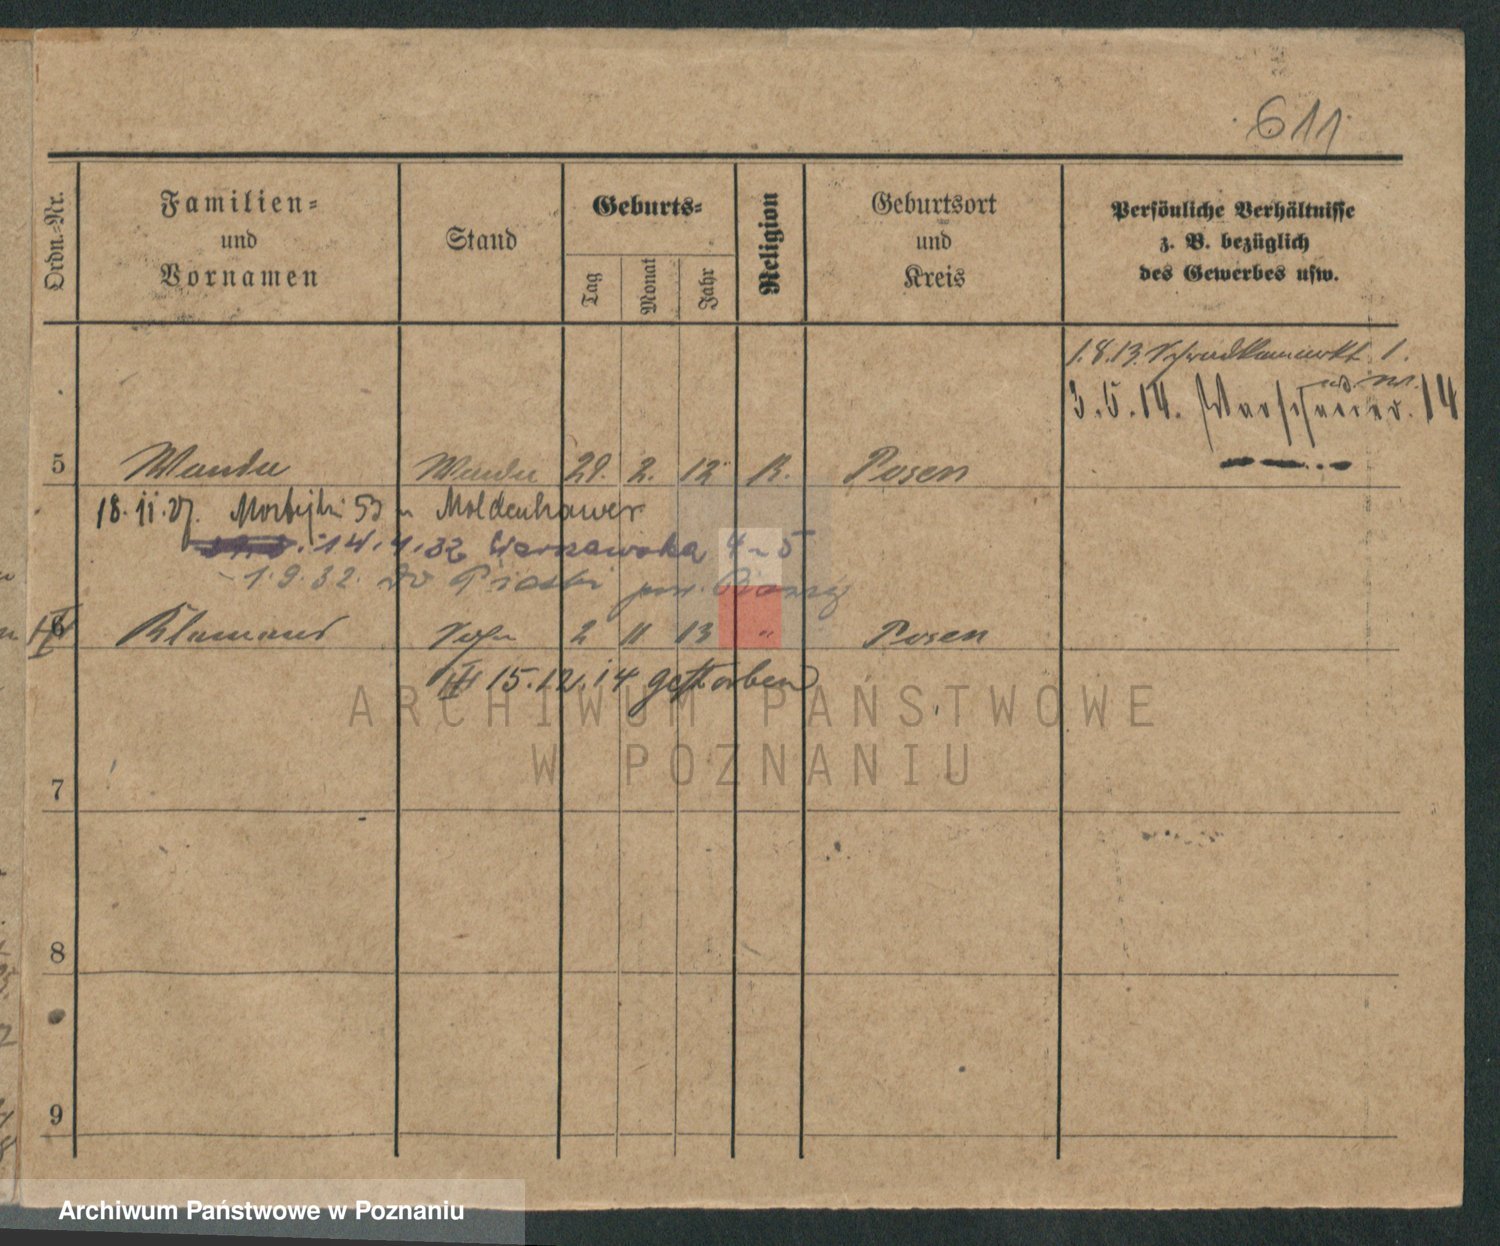 611
Ordn.-Nr.
Familien-
und
Vornamen
Stand
Geburts-
Tag
Monat
Jahr
Religion
Geburtsort
und
Kreis
Persönliche Verhältnisse
z. B. bezüglich
des Gewerbes usw.
1.8.13. 1.
3.5.14. 14
5 Wanda 2. 12 Posen
18.11.27. 53 Moldenhawer
14.4.32 Warszawska 4-5
1.9.32. do Piaski
6 Klemens Sohn 2 11 13 " Posen
15.12.14 gestorben
ARCHIWUM PAŃSTWOWE
W POZNANIU
7
8
9
Archiwum Państwowe w Poznaniu